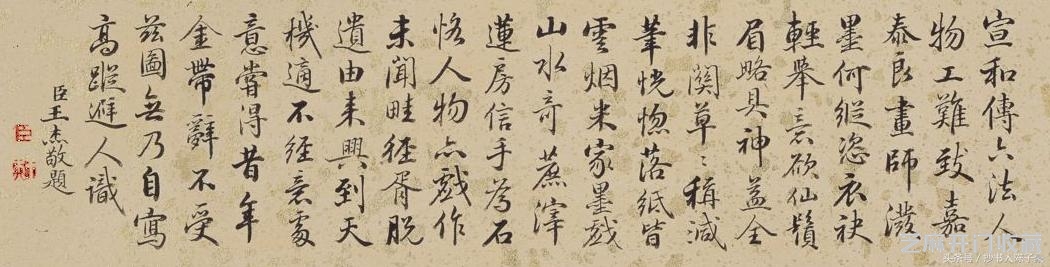 宣和傳六法人
物工難致嘉
泰良畫師潑
墨何縱恣衣袂
輕舉意欲仙鬚
眉略具神益全
非關草〻稱減
筆恍惚落紙皆
雲烟米家墨戲
山水奇蔗滓
蓮房信手為石
恪人物亦戲作
未聞畦徑胥脫
遺由来興到天
機適不經意處
意嘗得昔年
金帶辭不受
茲圖無乃自寫
高蹤避人識
臣王杰敬題
臣
头条号 / 抄书人陈子